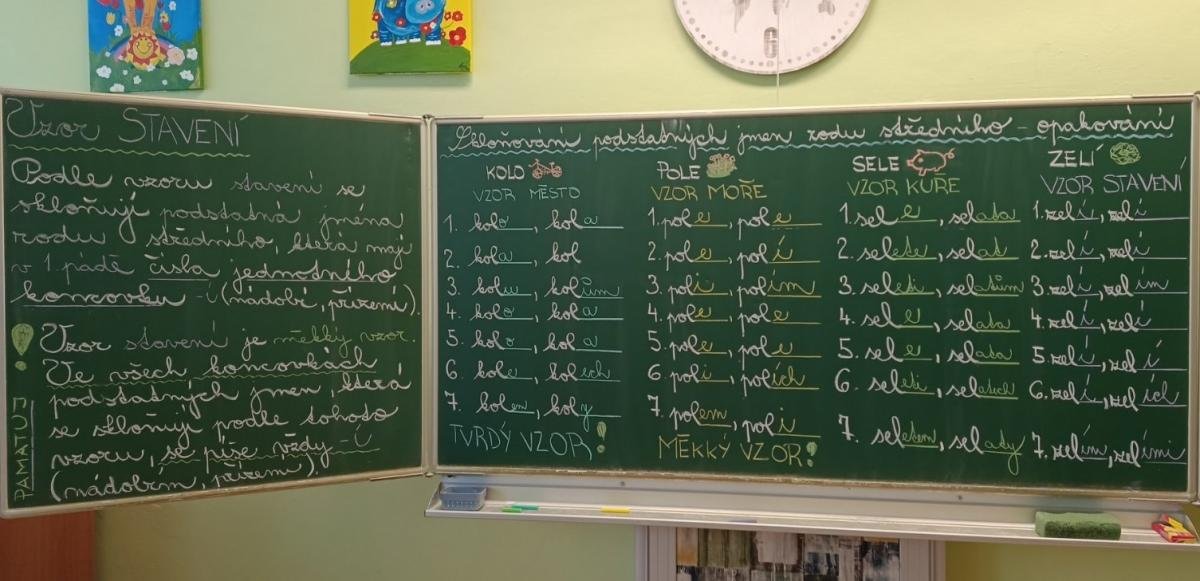 Vzor STAVENÍ
Podle vzoru stavení se
skloňují podstatná jména
rodu středního, která mají
v 1. pádě čísla jednotného
koncovku -í (nádobí, přízení).
Vzor stavení je měkký vzor.
Ve všech koncovkách
podstatných jmen, která
se skloňují podle tohoto
vzoru, se píše vždy -í
(nádobím, přízení)
PAMATUJ
Skloňování podstatných jmen rodu středního - opakování
KOLO
VZOR MĚSTO
1. kolo, kola
2. kola, kol
3. kolu, kolům
4. kolo, kola
5. kolo, kola
6. kole, kolech
7. kolem, koly
TVRDÝ VZOR!
POLE
VZOR MOŘE
1. pole, pole
2. pole, polí
3. poli, polím
4. pole, pole
5. pole, pole
6. poli, polích
7. polem, poli
MĚKKÝ VZOR!
SELE
VZOR KUŘE
1. sele, selata
2. selete, selat
3. seleti, selatům
4. sele, selata
5. sele, selata
6. seleti, selatech
7. seletem, selaty
ZELÍ
VZOR STAVENÍ
1. zelí, zelí
2. zelí, zelí
3. zelí, zelím
4. zelí, zelí
5. zelí, zelí
6. zelí, zelích
7. zelím, zelími